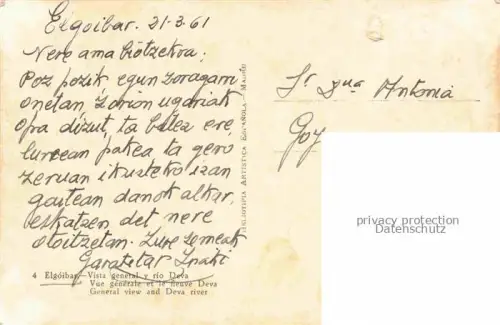 Elgoibar. 21-3.61
Nere ama biotzekoa:
Poz pozik egun zoragarri
onetan zorion ugariak
opa dizut, ta batez ere,
lurrean pakea ta gero
zeruan ikusteko izan
gaitean danok alkar,
eskatzen det nere
otoitzetan. Zure semeak
Garatetar Iñaki
4 Elgóibar.-Vista general y río Deva
Vue générale et le fleuve Deva
General view and Deva river
HELIOTIPIA ARTÍSTICA ESPAÑOLA - MADRID
Sr Dña Antonia
Goy
privacy protection
Datenschutz